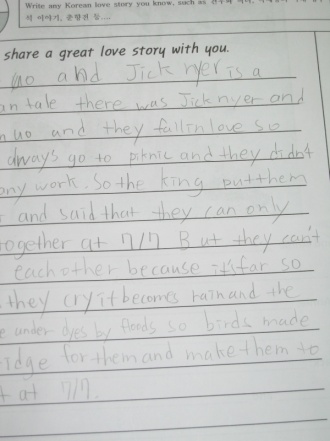 Write any Korean love story you know, such as
적 이야기, 춘향전 등....
share a great love story with you.
and Jick nyer is a
an tale there was Jicknyer and
uo and they fall in love so
always go to piknic and they didn't
any work. So the king put them
and said that they can only
together at 7/7 But they can't
each other because it's far so
they cry it becomes rain and the
under dyes by floods so birds made
idge for them and make them to
t at 7/7.